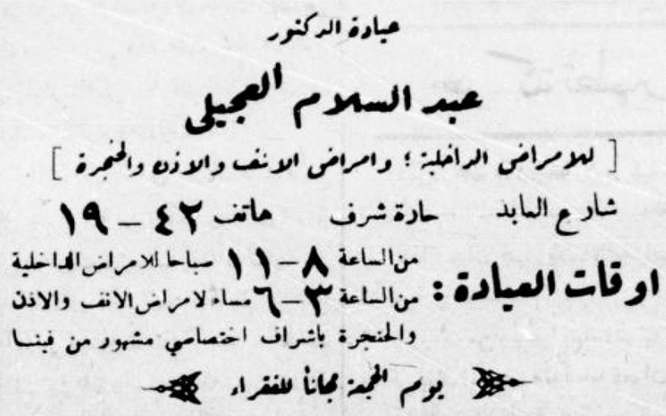 عيادة الدكتور
عبد السلام العجيلي
[ للامراض الداخلية ؛ وامراض الانف والاذن والحنجرة ]
شارع العابد حادة شرف هاتف ٤٢ – ١٩
اوقات العيادة :
من الساعة ٨ – ١١ صباحا للامراض الداخلية
من الساعة ٣ – ٦ مساء لامراض الانف والاذن
والحنجرة باشراف اختصاصي مشهور من فينا
يوم الجمعة مجاناً للفقراء